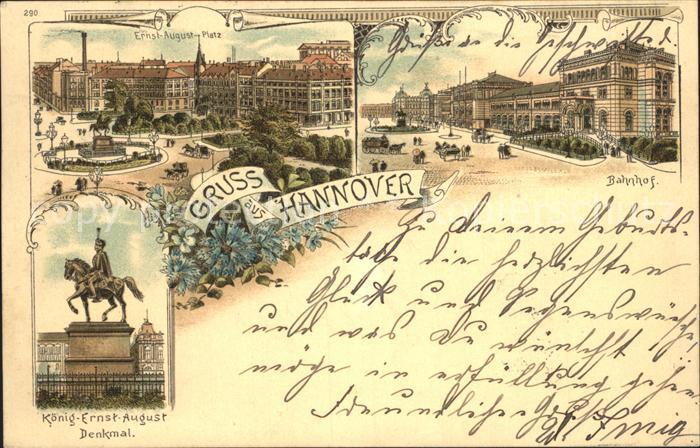 290
Ernst-August-Platz
Grüße
Bahnhof.
GRUSS
aus
HANNOVER
Zu deinem Geburts-
tage die herzlichsten
Glück und Segenswünsche
und was Du wünschst
möge in erfüllung gehen
Freundliche
König-Ernst-August
Denkmal.